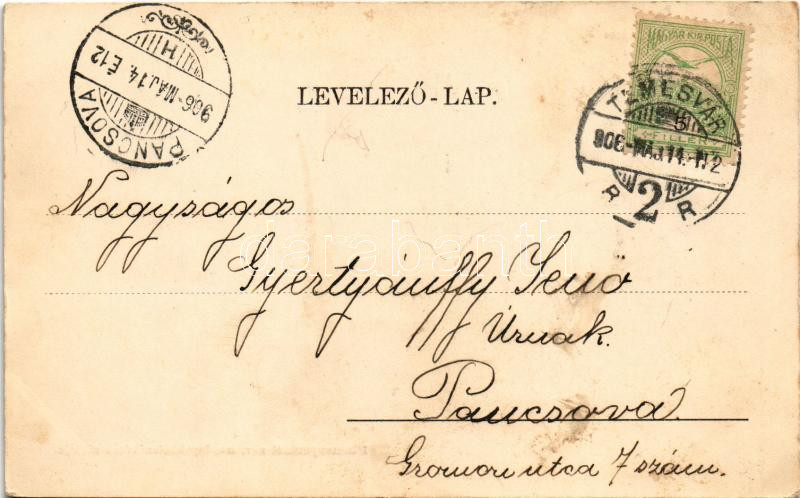 PANCSOVA
906-MÁJ.14. É12
H
MAGYAR KIR. POSTA
5
FILLÉR
TEMESVÁR
906-MÁJ.14.-N2
R 2 R
LEVELEZŐ-LAP.
Nagyságos
Gyertyánffy Jenő
Úrnak.
Pancsova
utca 7 szám.
darabanth